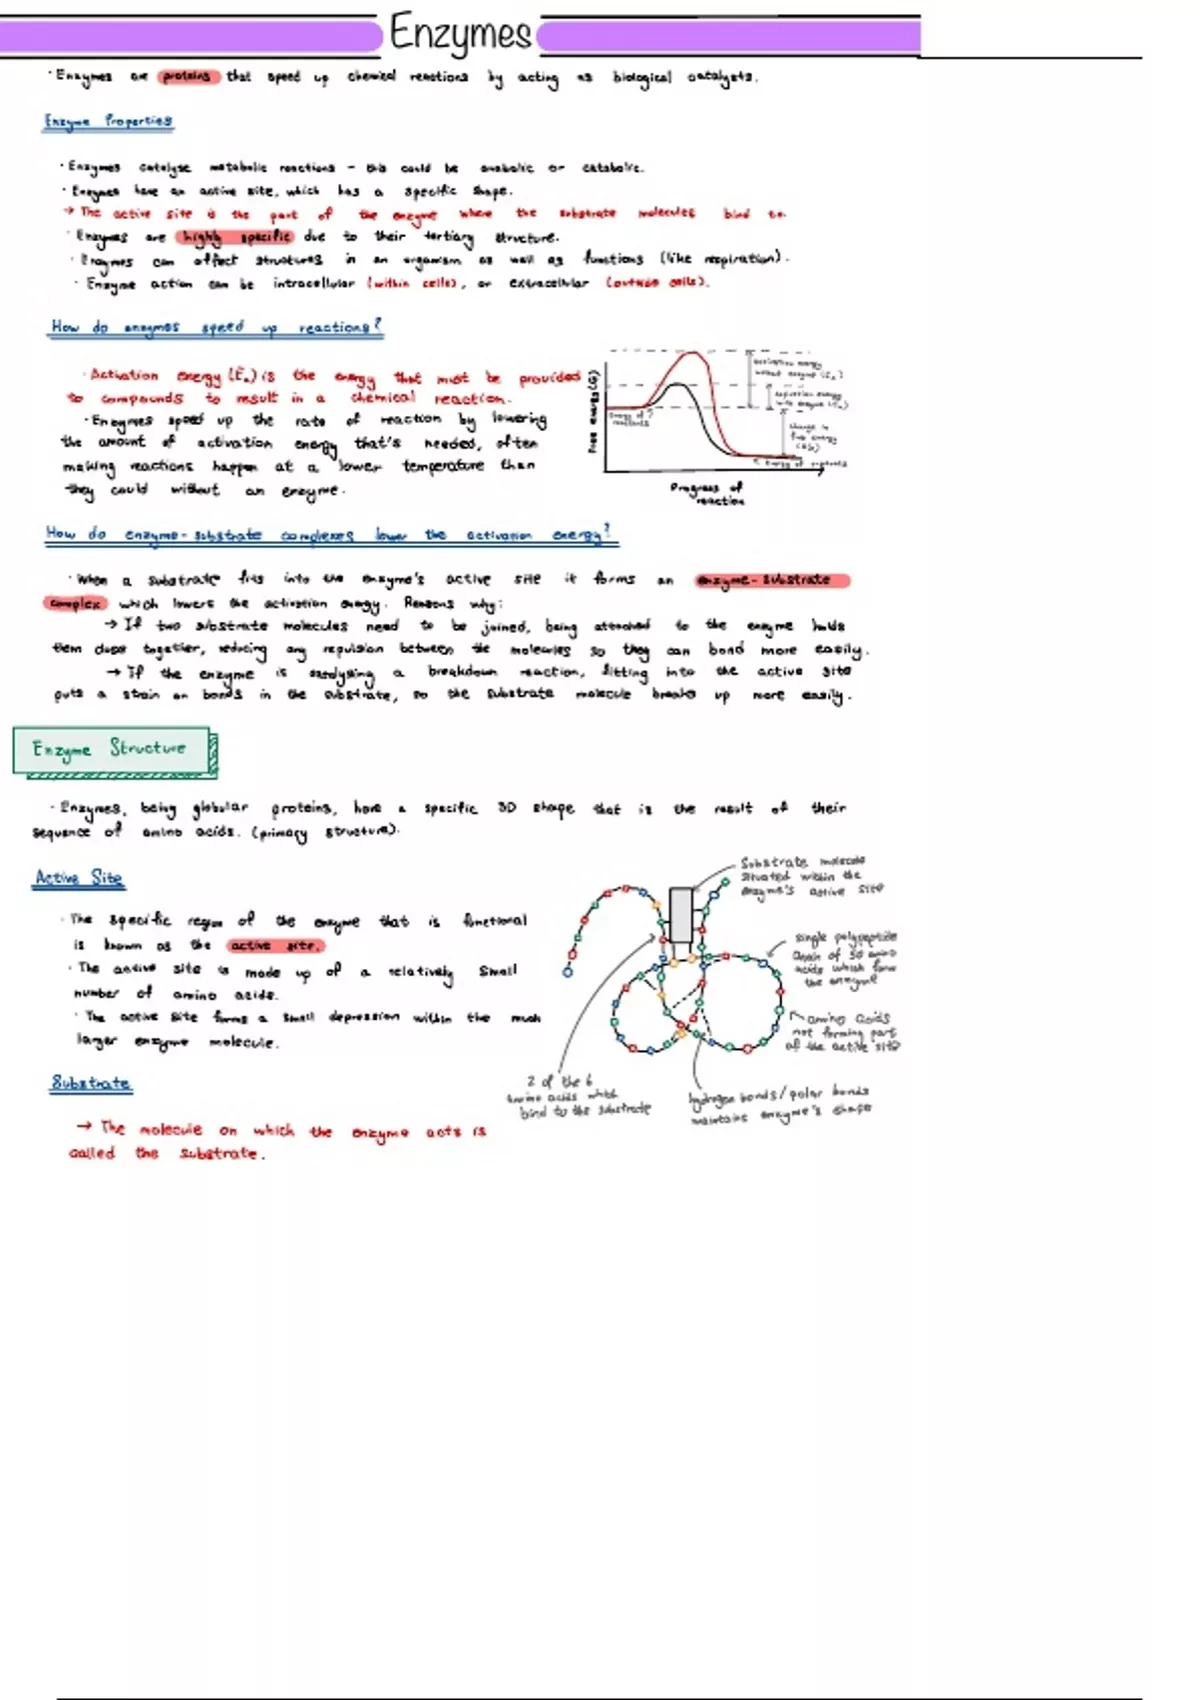 Enzymes
· Enzymes are proteins that speed up chemical reactions by acting as biological catalysts.
Enzyme Properties
· Enzymes catalyse metabolic reactions - this could be anabolic or catabolic.
· Enzymes have an active site, which has a specific shape.
→ The active site is the part of the enzyme where the substrate molecules bind to.
· Enzymes are highly specific due to their tertiary structure.
· Enzymes can affect structures in an organism as well as functions (like respiration).
· Enzyme action can be intracellular (within cells), or extracellular (outside cells).
How do enzymes speed up reactions?
· Activation energy (Eₐ) is the energy that must be provided
to compounds to result in a chemical reaction.
· Enzymes speed up the rate of reaction by lowering
the amount of activation energy that's needed, often
making reactions happen at a lower temperature than
they could without an enzyme.
Free energy (G)
activation energy
without enzyme (Eₐ)
activation energy
with enzyme (Eₐ)
change in
free energy
(ΔG)
Energy of
reactants
Energy of products
Progress of
reaction
How do enzyme-substrate complexes lower the activation energy?
· When a substrate fits into the enzyme's active site it forms an enzyme-substrate
complex which lowers the activation energy. Reasons why:
→ If two substrate molecules need to be joined, being attached to the enzyme holds
them close together, reducing any repulsion between the molecules so they can bond more easily.
→ If the enzyme is catalysing a breakdown reaction, fitting into the active site
puts a strain on bonds in the substrate, so the substrate molecule breaks up more easily.
Enzyme Structure
· Enzymes, being globular proteins, have a specific 3D shape that is the result of their
sequence of amino acids. (primary structure).
Active Site
· The specific region of the enzyme that is functional
is known as the active site.
· The active site is made up of a relatively small
number of amino acids.
· The active site forms a small depression within the much
larger enzyme molecule.
Substrate molecule
situated within the
enzyme's active site
single polypeptide
chain of 50 amino
acids which form
the enzyme
amino acids
not forming part
of the active site
2 of the 6
amino acids which
bind to the substrate
hydrogen bonds/polar bonds
maintains enzyme's shape
Substrate
→ The molecule on which the enzyme acts is
called the substrate.